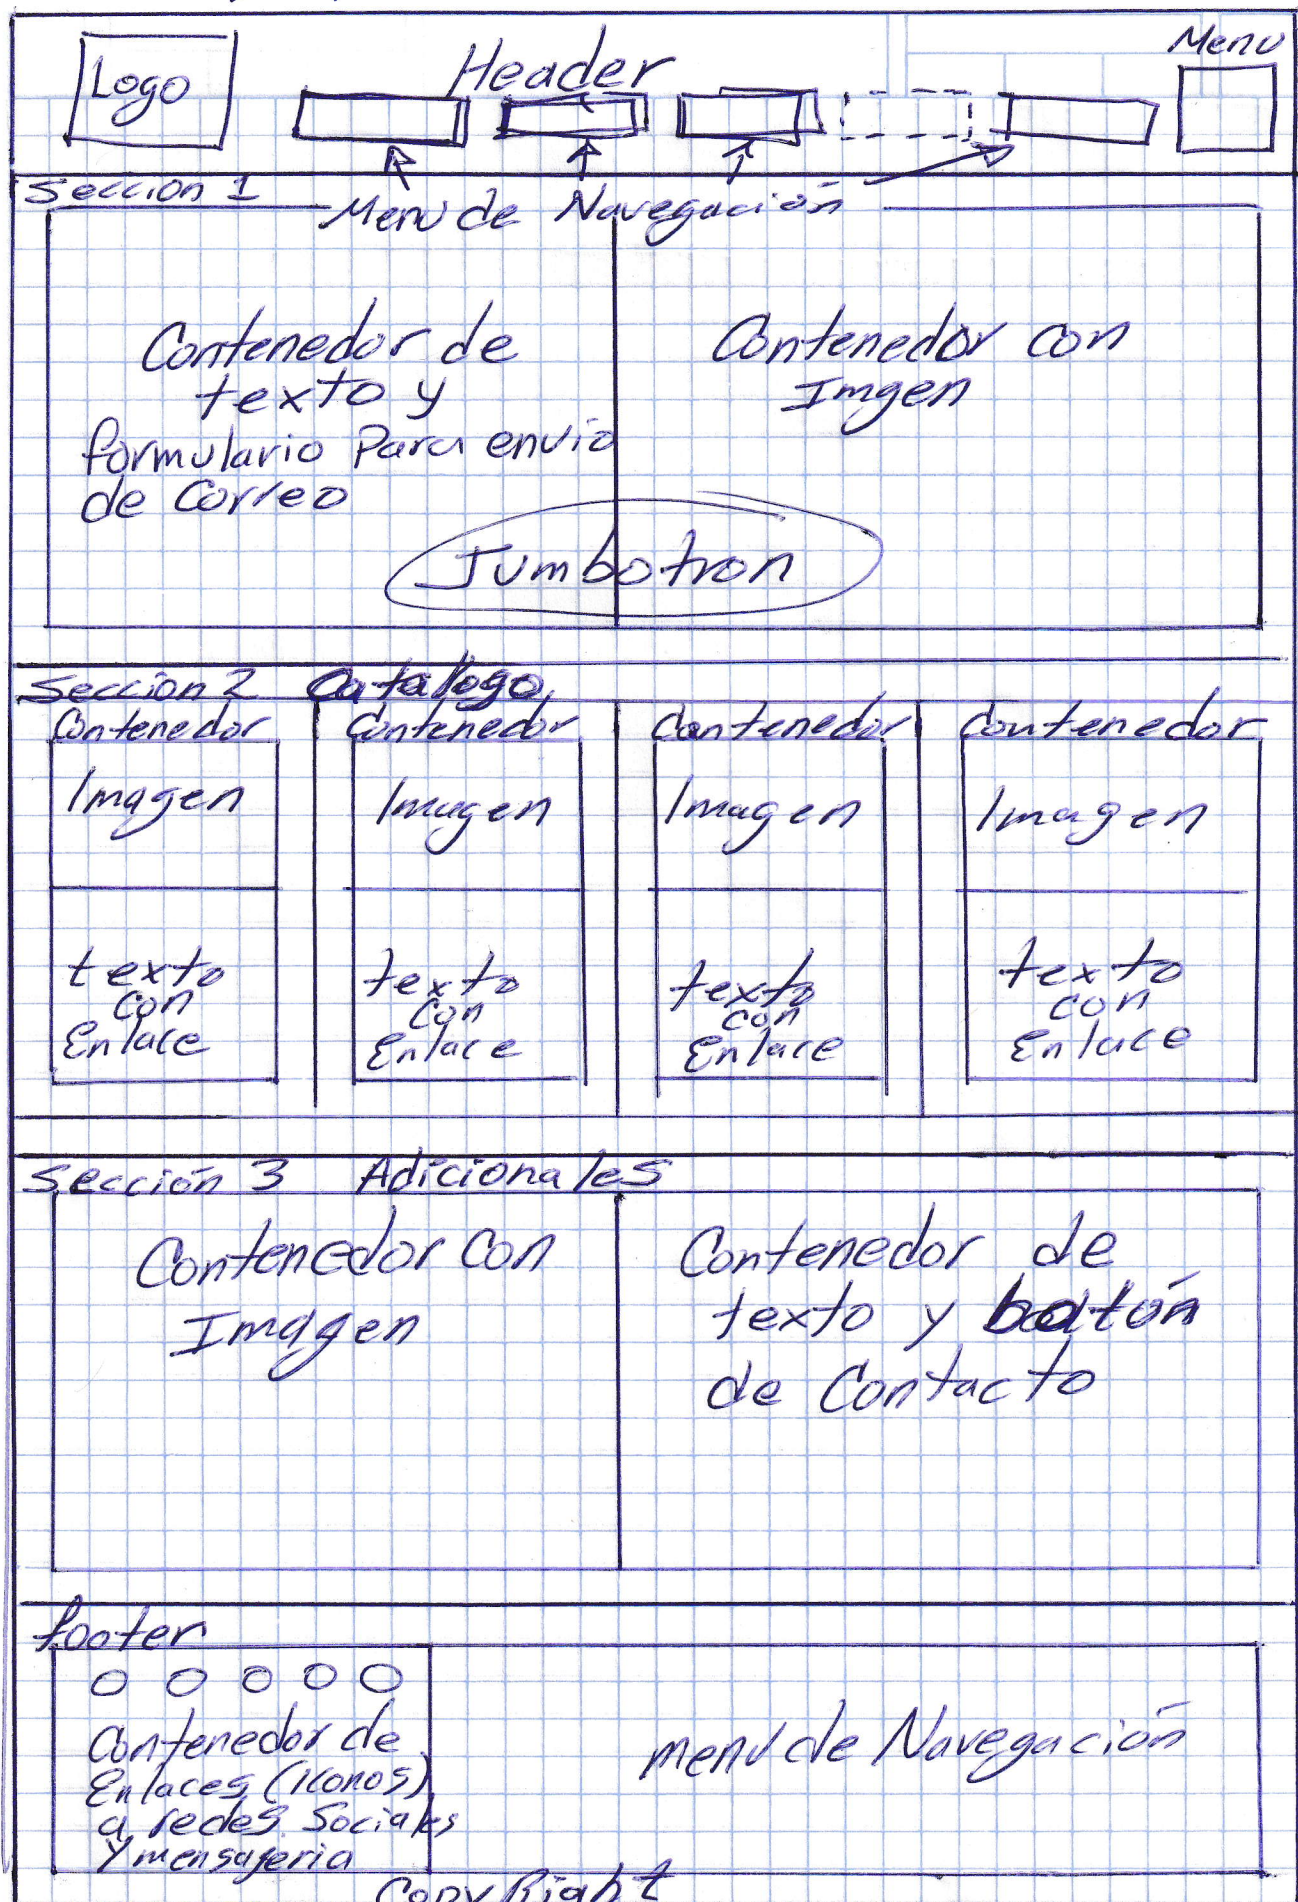 Menu
Logo
Header
Sección 1
Menu de Navegación
Contenedor de
texto y
formulario Para envio
de Correo
Contenedor con
Imgen
Jumbotron
Sección 2 Catalogo
Contenedor
Imagen
texto
con
Enlace
Contenedor
Imagen
texto
con
Enlace
Contenedor
Imagen
texto
con
Enlace
Contenedor
Imagen
texto
con
Enlace
Sección 3 Adicionales
Contenedor con
Imagen
Contenedor de
texto y botón
de Contacto
footer
Contenedor de
Enlaces (iconos)
a redes Sociales
y mensajeria
menu de Navegación
CopyRight